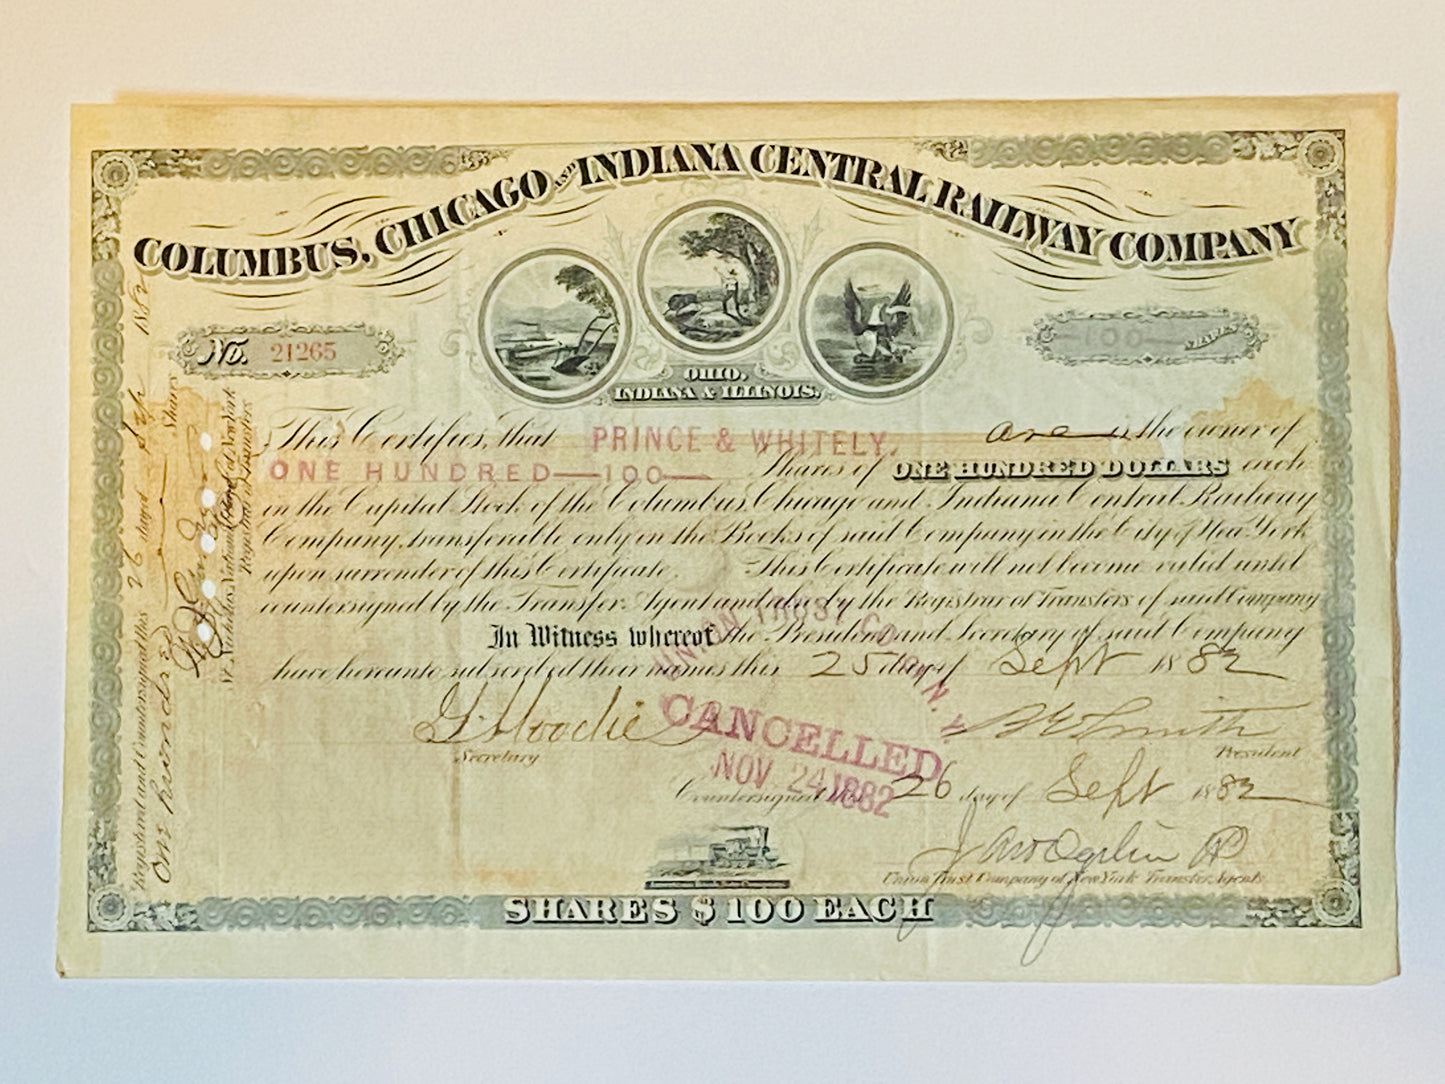 COLUMBUS, CHICAGO AND INDIANA CENTRAL RAILWAY COMPANY
No. 21265
100 SHARES
OHIO,
INDIANA & ILLINOIS.
This Certifies, that PRINCE & WHITELY, are is the owner of
ONE HUNDRED—100— Shares of ONE HUNDRED DOLLARS each
in the Capital Stock of the Columbus, Chicago and Indiana Central Railway
Company, transferable only on the Books of said Company in the City of New York
upon surrender of this Certificate. This Certificate will not become valid until
countersigned by the Transfer Agent and also by the Registrar of Transfers of said Company
In Witness whereof, the President and Secretary of said Company
have hereunto subscribed their names this 25 day of Sept 1882
Secretary
Smith
President
UNION TRUST CO. OF N.Y.
CANCELLED
NOV 24 1882
Countersigned this 26 day of Sept 1882
Union Trust Company of New York Transfer Agents
SHARES $100 EACH
Registered and Countersigned this 26 day of Sept 1882
One hundred Shares
National Bank of New York
Registrar of Transfers